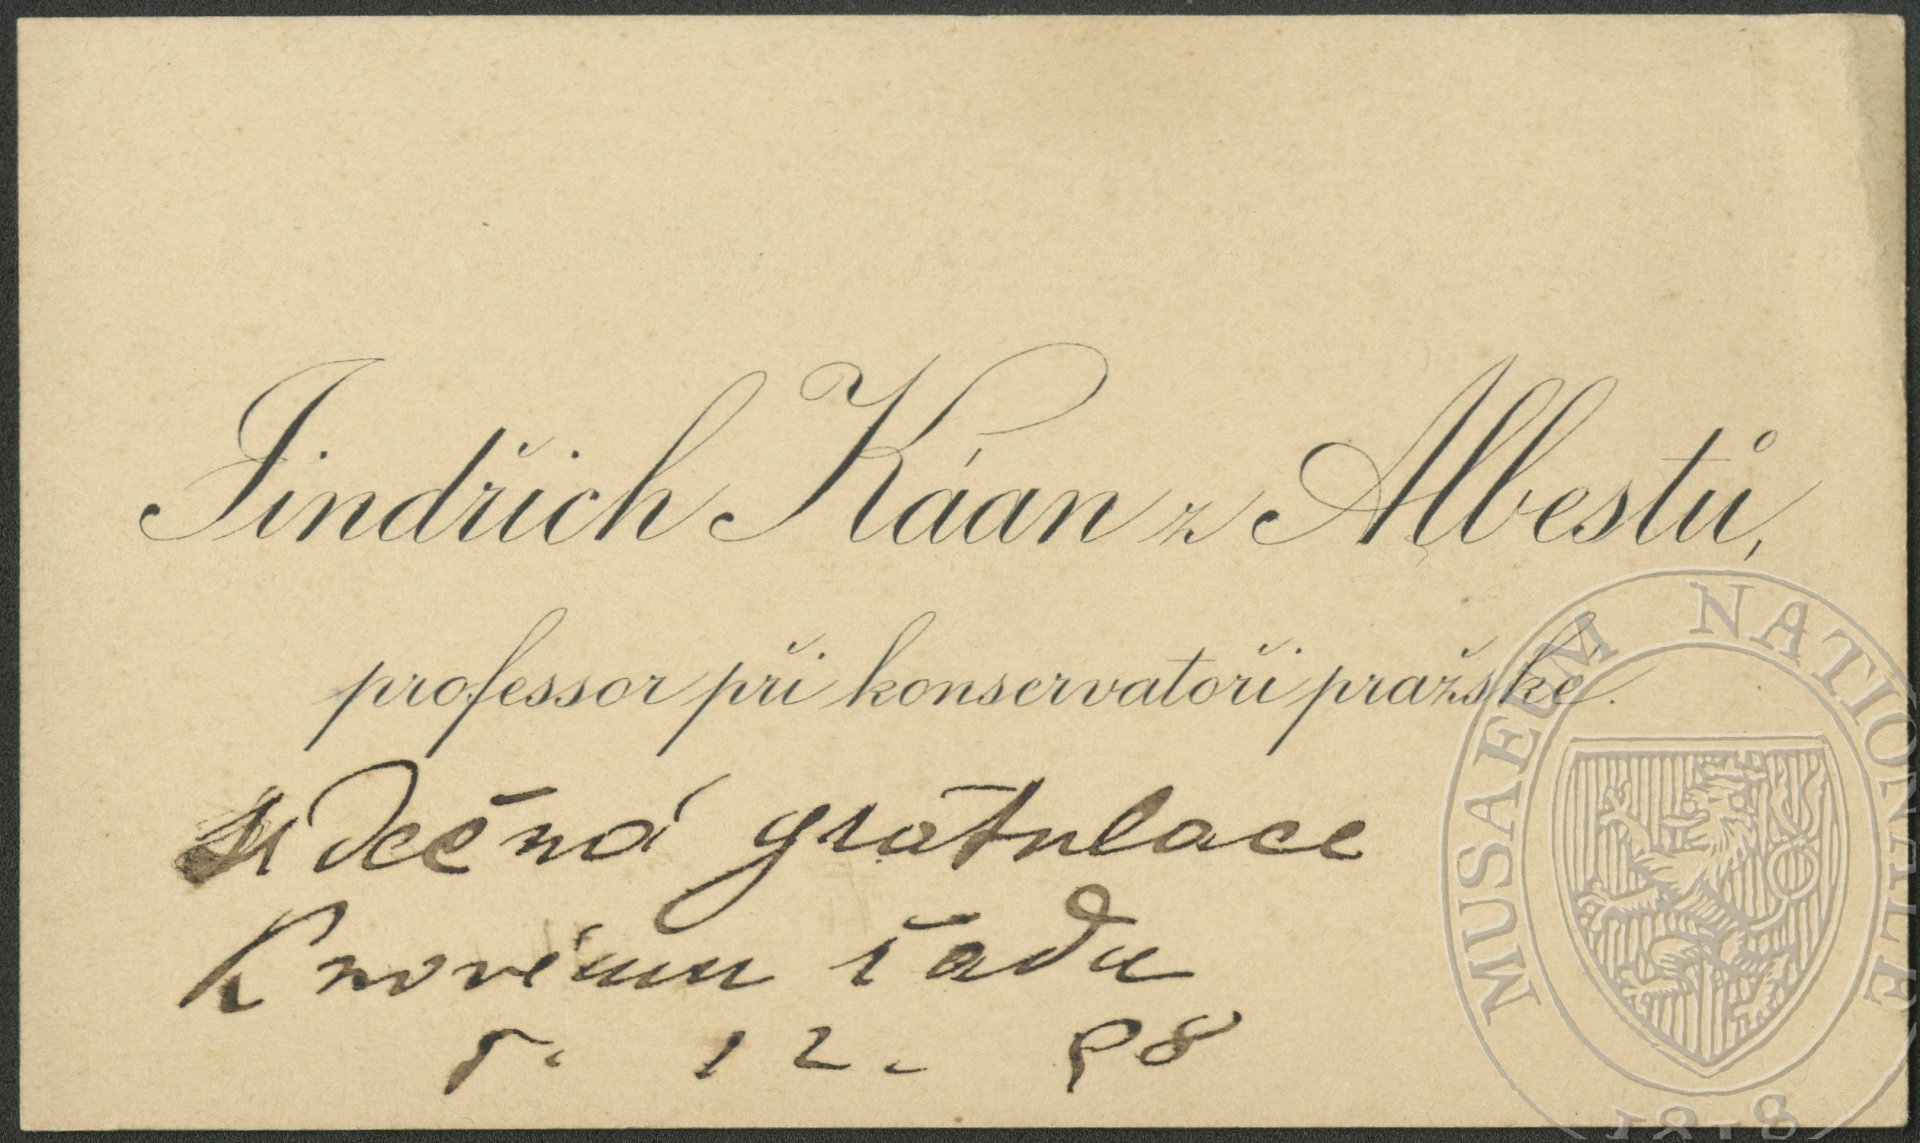 Jindřich Káan z Albestů,
professor při konservatoři pražské.
srdečná gratulace
K novému řádu
5. 12. 98
MUSAEUM NATIONALE
1818